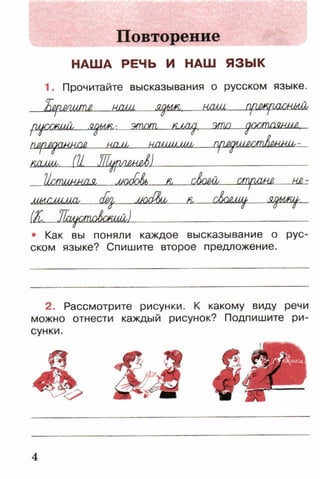 Повторение
НАША РЕЧЬ И НАШ ЯЗЫК
1. Прочитайте высказывания о русском языке.
Берегите наш язык, наш прекрасный
русский язык: этот клад, это достояние,
переданное нам нашими предшественни-
ками. (И. Тургенев)
Истинная любовь к своей стране не-
мыслима без любви к своему языку.
(К. Паустовский)
• Как вы поняли каждое высказывание о рус-
ском языке? Спишите второе предложение.
2. Рассмотрите рисунки. К какому виду речи
можно отнести каждый рисунок? Подпишите ри-
сунки.
4